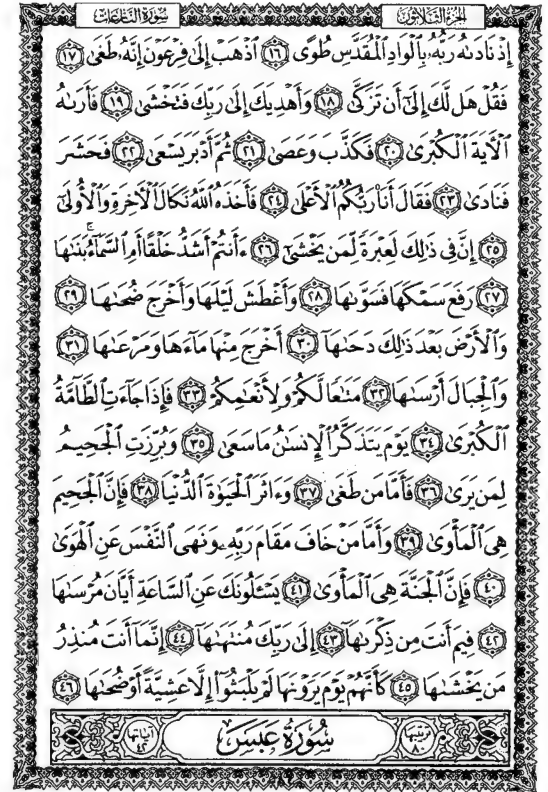 الجزء الثلاثون سورة النازعات
إِذْ نَادَىٰهُ رَبُّهُۥ بِٱلْوَادِ ٱلْمُقَدَّسِ طُوًى ١٦ ٱذْهَبْ إِلَىٰ فِرْعَوْنَ إِنَّهُۥ طَغَىٰ ١٧
فَقُلْ هَل لَّكَ إِلَىٰٓ أَن تَزَكَّىٰ ١٨ وَأَهْدِيَكَ إِلَىٰ رَبِّكَ فَتَخْشَىٰ ١٩ فَأَرَىٰهُ
ٱلْـَٔايَةَ ٱلْكُبْرَىٰ ٢٠ فَكَذَّبَ وَعَصَىٰ ٢١ ثُمَّ أَدْبَرَ يَسْعَىٰ ٢٢ فَحَشَرَ
فَنَادَىٰ ٢٣ فَقَالَ أَنَا۠ رَبُّكُمُ ٱلْأَعْلَىٰ ٢٤ فَأَخَذَهُ ٱللَّهُ نَكَالَ ٱلْـَٔاخِرَةِ وَٱلْأُولَىٰٓ
٢٥ إِنَّ فِى ذَٰلِكَ لَعِبْرَةً لِّمَن يَخْشَىٰٓ ٢٦ ءَأَنتُمْ أَشَدُّ خَلْقًا أَمِ ٱلسَّمَآءُ ۚ بَنَىٰهَا
٢٧ رَفَعَ سَمْكَهَا فَسَوَّىٰهَا ٢٨ وَأَغْطَشَ لَيْلَهَا وَأَخْرَجَ ضُحَىٰهَا ٢٩
وَٱلْأَرْضَ بَعْدَ ذَٰلِكَ دَحَىٰهَآ ٣٠ أَخْرَجَ مِنْهَا مَآءَهَا وَمَرْعَىٰهَا ٣١
وَٱلْجِبَالَ أَرْسَىٰهَا ٣٢ مَتَـٰعًا لَّكُمْ وَلِأَنْعَـٰمِكُمْ ٣٣ فَإِذَا جَآءَتِ ٱلطَّآمَّةُ
ٱلْكُبْرَىٰ ٣٤ يَوْمَ يَتَذَكَّرُ ٱلْإِنسَـٰنُ مَا سَعَىٰ ٣٥ وَبُرِّزَتِ ٱلْجَحِيمُ
لِمَن يَرَىٰ ٣٦ فَأَمَّا مَن طَغَىٰ ٣٧ وَءَاثَرَ ٱلْحَيَوٰةَ ٱلدُّنْيَا ٣٨ فَإِنَّ ٱلْجَحِيمَ
هِىَ ٱلْمَأْوَىٰ ٣٩ وَأَمَّا مَنْ خَافَ مَقَامَ رَبِّهِۦ وَنَهَى ٱلنَّفْسَ عَنِ ٱلْهَوَىٰ
٤٠ فَإِنَّ ٱلْجَنَّةَ هِىَ ٱلْمَأْوَىٰ ٤١ يَسْـَٔلُونَكَ عَنِ ٱلسَّاعَةِ أَيَّانَ مُرْسَىٰهَا
٤٢ فِيمَ أَنتَ مِن ذِكْرَىٰهَآ ٤٣ إِلَىٰ رَبِّكَ مُنتَهَىٰهَآ ٤٤ إِنَّمَآ أَنتَ مُنذِرُ
مَن يَخْشَىٰهَا ٤٥ كَأَنَّهُمْ يَوْمَ يَرَوْنَهَا لَمْ يَلْبَثُوٓا۟ إِلَّا عَشِيَّةً أَوْ ضُحَىٰهَا ٤٦
ترتيبها ٨٠ سُورَةُ عَبَسَ آياتها ٤٢